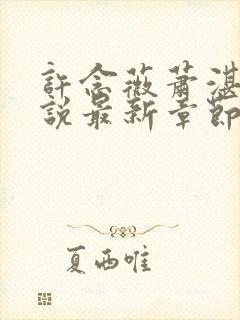 許念薇蕭湛
說最新章節
夏西唯